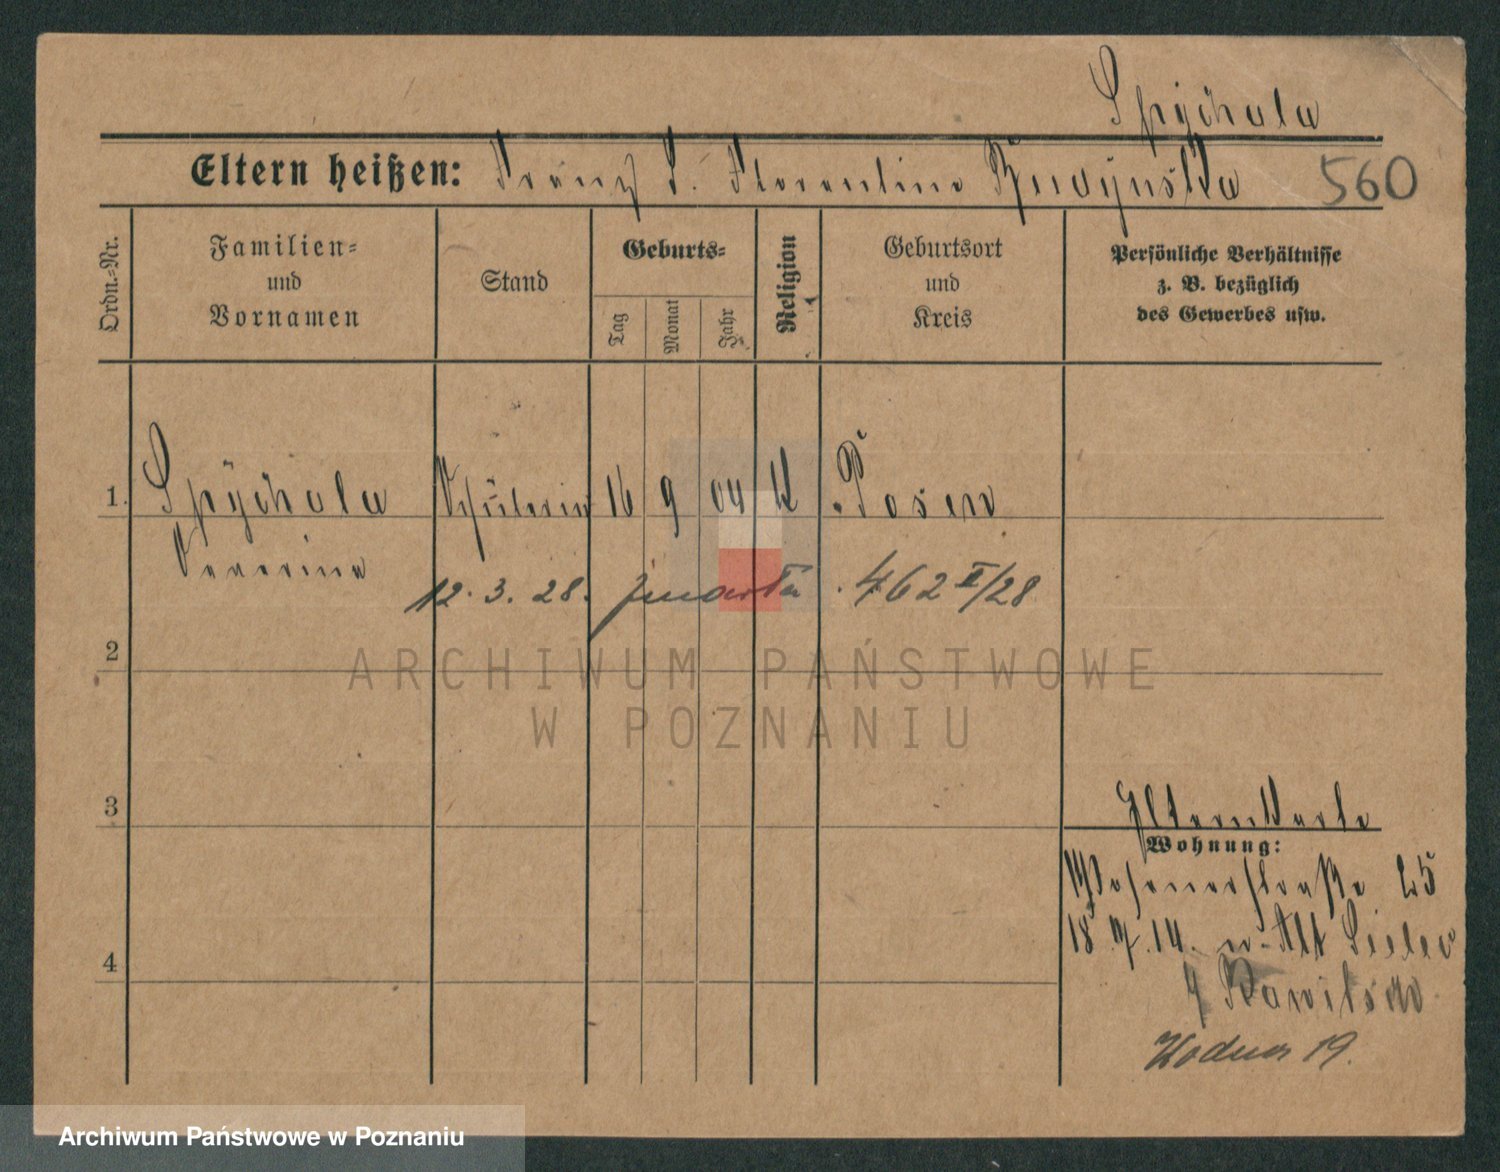 Spÿchala
Eltern heißen: Franz S. Florentine Rudÿnska 560
Ordn.-Nr.
Familien-
und
Vornamen
Stand
Geburts-
Tag
Monat
Jahr
Religion
Geburtsort
und
Kreis
Persönliche Verhältnisse
z. B. bezüglich
des Gewerbes usw.
1. Spÿchala Schülerin 16 9 04 K Posen
12. 3. 28. zmarła 462 II/28
2
3
4
Elternkarte
Wohnung:
Posenerstraße 25
18. 14. n. Alt
Rawitsch
Wodna 19.
ARCHIWUM PAŃSTWOWE
W POZNANIU
Archiwum Państwowe w Poznaniu